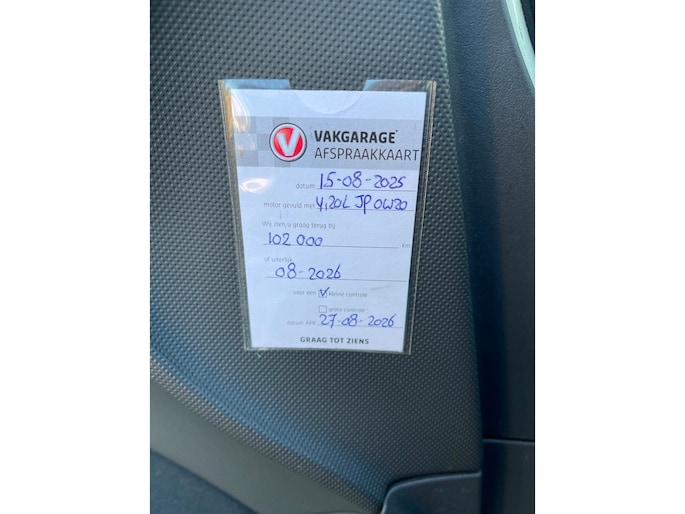 V VAKGARAGE
AFSPRAAKKAART
datum 15-08-2025
motor gevuld met 4,20L JP 0W20
Wij zien u graag terug bij
102 000 km
of uiterlijk
08-2026
voor een kleine controle
grote controle
datum APK 27-08-2026
GRAAG TOT ZIENS